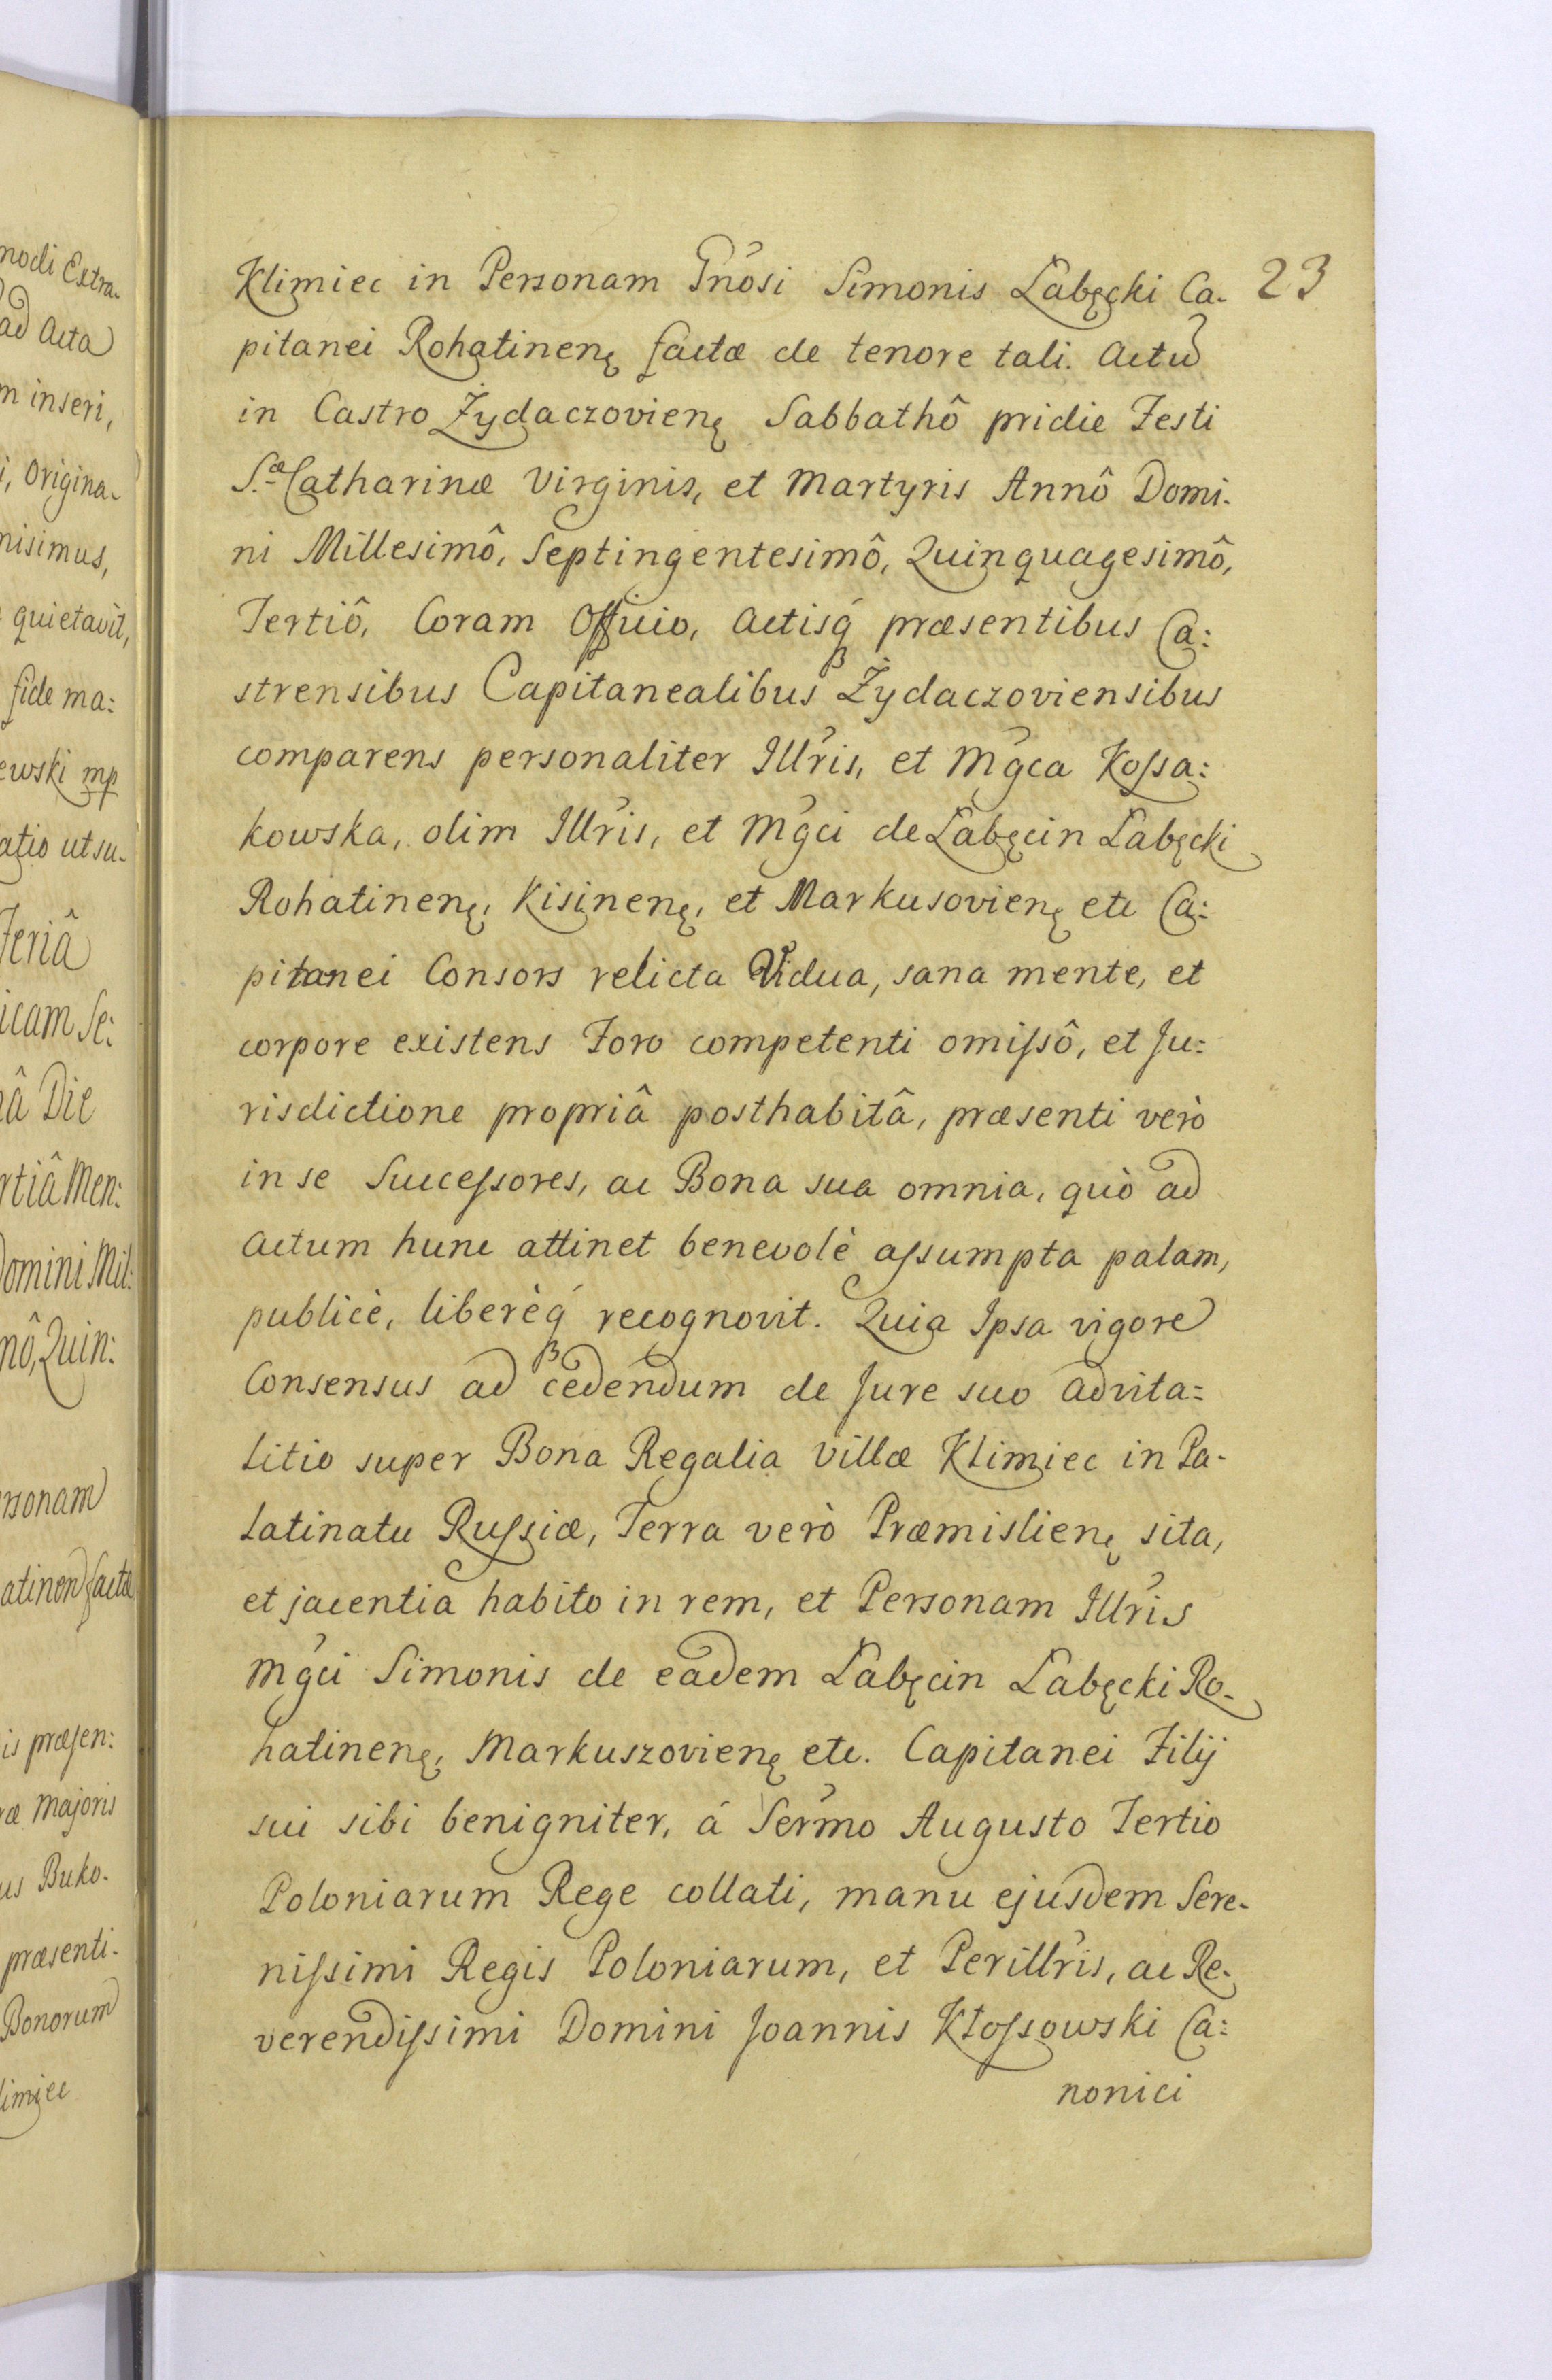 modi Extra-
ad Acta
m inseri,
i, Origina-
nisimus,
quietavit,
fide ma:
ewski mp
atio ut su-
Feriâ
icam Se:
â Die
rtiâ Men:
Domini Mil:
mô, Quin:
rsonam
atinen factæ
is præsen:
ræ Majoris
us Buko-
præsenti-
Bonorum
limiec
23
Klimiec in Personam Gnosi Simonis Łabęcki Ca-
pitanei Rohatinenę factæ de tenore tali. Actu
in Castro Żydaczovienę Sabbathô pridie Festi
S.æ Catharinæ Virginis, et Martyris Annô Domi-
ni Millesimô, Septingentesimô, Quinquagesimô,
Tertiô, Coram Officio, Actisq́ præsentibus Ca:
strensibus Capitanealibus Żydaczoviensibus
comparens personaliter Illris, et Mgca Kossa:
kowska, olim Illris, et Mgci de Łabęcin Łabęcki
Rohatinenę, Kisinenę, et Markusovienę etc Ca:
pitanei Consors relicta Vidua, sana mente, et
corpore existens Foro competenti omissô, et Ju:
risdictione propriâ posthabitâ, præsenti verò
in se Successores, ac Bona sua omnia, quò ad
Actum hunc attinet benevolè assumpta palam,
publicè, liberèq́ recognovit. Quia Ipsa vigore
Consensus ad cedendum de Jure suo advita:
litio super Bona Regalia Villæ Klimiec in Pa-
latinatu Russiæ, Terra verò Præmislienę sita,
et jacentia habito in rem, et Personam Illris
Mgci Simonis de eadem Łabęcin Łabęcki Ro-
hatinenę, Markuszovienę etc. Capitanei Filij
sui sibi benigniter, á Sermo Augusto Tertio
Poloniarum Rege collati, manu ejusdem Sere-
nissimi Regis Poloniarum, et Perillris, ac Re-
verendissimi Domini Joannis Kłossowski Ca:
nonici